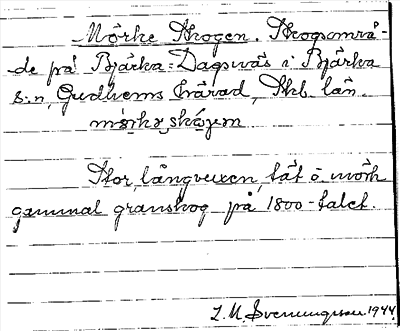 Mörke Skogen. Skogsområ-
de på Bjärka-Dagsnäs i Bjärka
s:n, Gudhems härad, Skb. län.
mörkɜ skójen
Stor, långvuxen, tät o mörk
gammal granskog på 1800-talet.
L. M. Svenungsson 1944.